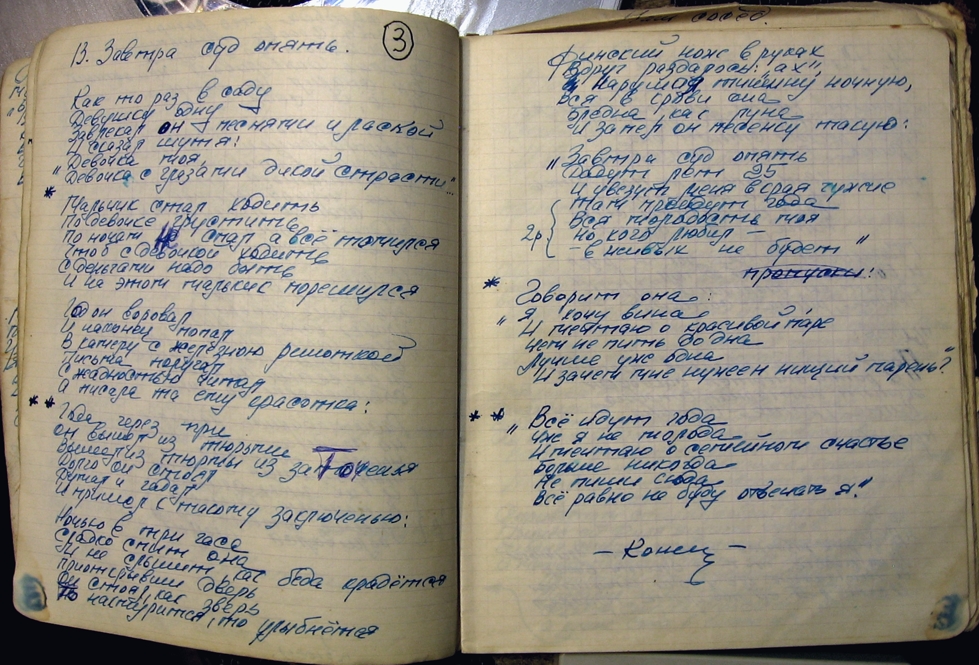 13. Завтра суд опять.
3
Как то раз в саду
Девушку одну
Завлекал он песнями и лаской
И сказал шутя:
"Девочка моя,
Девочка с глазами дикой страсти"...
*
Мальчик стал ходить
По девочке грустить
По ночам не спал а всё томился
Чтоб с девочкой ходить
С деньгами надо быть
И на этом мальчик порешился
Год он воровал
И наконец попал
В камеру с железною решоткой
Письма получал
С жадностью читал
А писала та ему красотка:
* *
Года через три
Он вышел из тюрьмы
Вышел из тюрьмы из заточения
Долго он стоял
Думал и гадал
И пришол к такому заключенью:
Ночью в три часа
Сладко спит она
И не слышит как беда крадётся
Приоткрывши дверь
Он стоял, как зверь
То нахмурится, то улыбнётся
Финский нож в руках
Вдруг раздалось: "ах",
Нарушая тишину ночную,
Вся в крови она
Бледна как луна
И запел он песенку такую:
"Завтра суд опять
Дадут лет 25
И увезут меня в края чужие
Там пройдут года
Вся молодость моя
2р { Но кого любил –
– в живых не будет"
пропуски:
*
Говорит она:
"Я хочу вина
И мечтаю о красивой паре
Чем не пить до дна
Лучше уже одна
И зачем мне нужен нищий парень?"
* *
"Всё идут года
Уже я не молода
И мечтаю о семейном счастье
Больше никогда
Не пиши сюда
Всё равно не буду отвечать я."
– Конец –